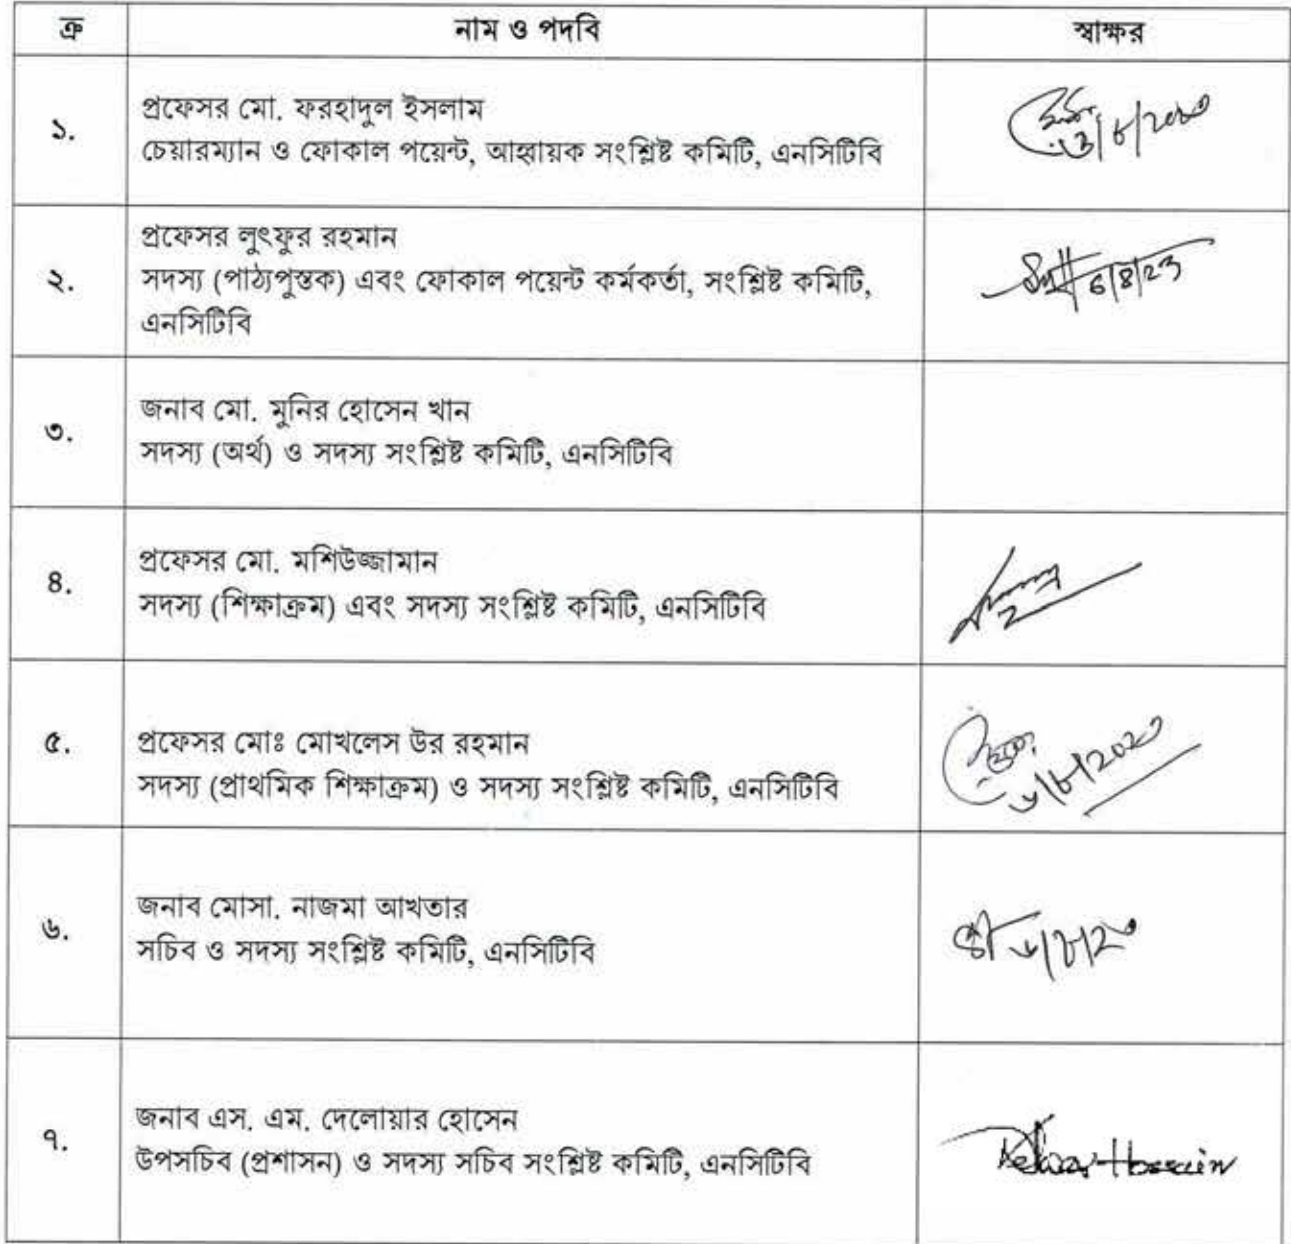 ক্র নাম ও পদবি স্বাক্ষর
১. প্রফেসর মো. ফরহাদুল ইসলাম
চেয়ারম্যান ও ফোকাল পয়েন্ট, আহ্বায়ক সংশ্লিষ্ট কমিটি, এনসিটিবি
২. প্রফেসর লুৎফুর রহমান
সদস্য (পাঠ্যপুস্তক) এবং ফোকাল পয়েন্ট কর্মকর্তা, সংশ্লিষ্ট কমিটি,
এনসিটিবি
6/8/23
৩. জনাব মো. মুনির হোসেন খান
সদস্য (অর্থ) ও সদস্য সংশ্লিষ্ট কমিটি, এনসিটিবি
৪. প্রফেসর মো. মশিউজ্জামান
সদস্য (শিক্ষাক্রম) এবং সদস্য সংশ্লিষ্ট কমিটি, এনসিটিবি
৫. প্রফেসর মোঃ মোখলেস উর রহমান
সদস্য (প্রাথমিক শিক্ষাক্রম) ও সদস্য সংশ্লিষ্ট কমিটি, এনসিটিবি
৬/৮/২০২৩
৬. জনাব মোসা. নাজমা আখতার
সচিব ও সদস্য সংশ্লিষ্ট কমিটি, এনসিটিবি
৬/৮/২৩
৭. জনাব এস. এম. দেলোয়ার হোসেন
উপসচিব (প্রশাসন) ও সদস্য সচিব সংশ্লিষ্ট কমিটি, এনসিটিবি
Delwar Hossain